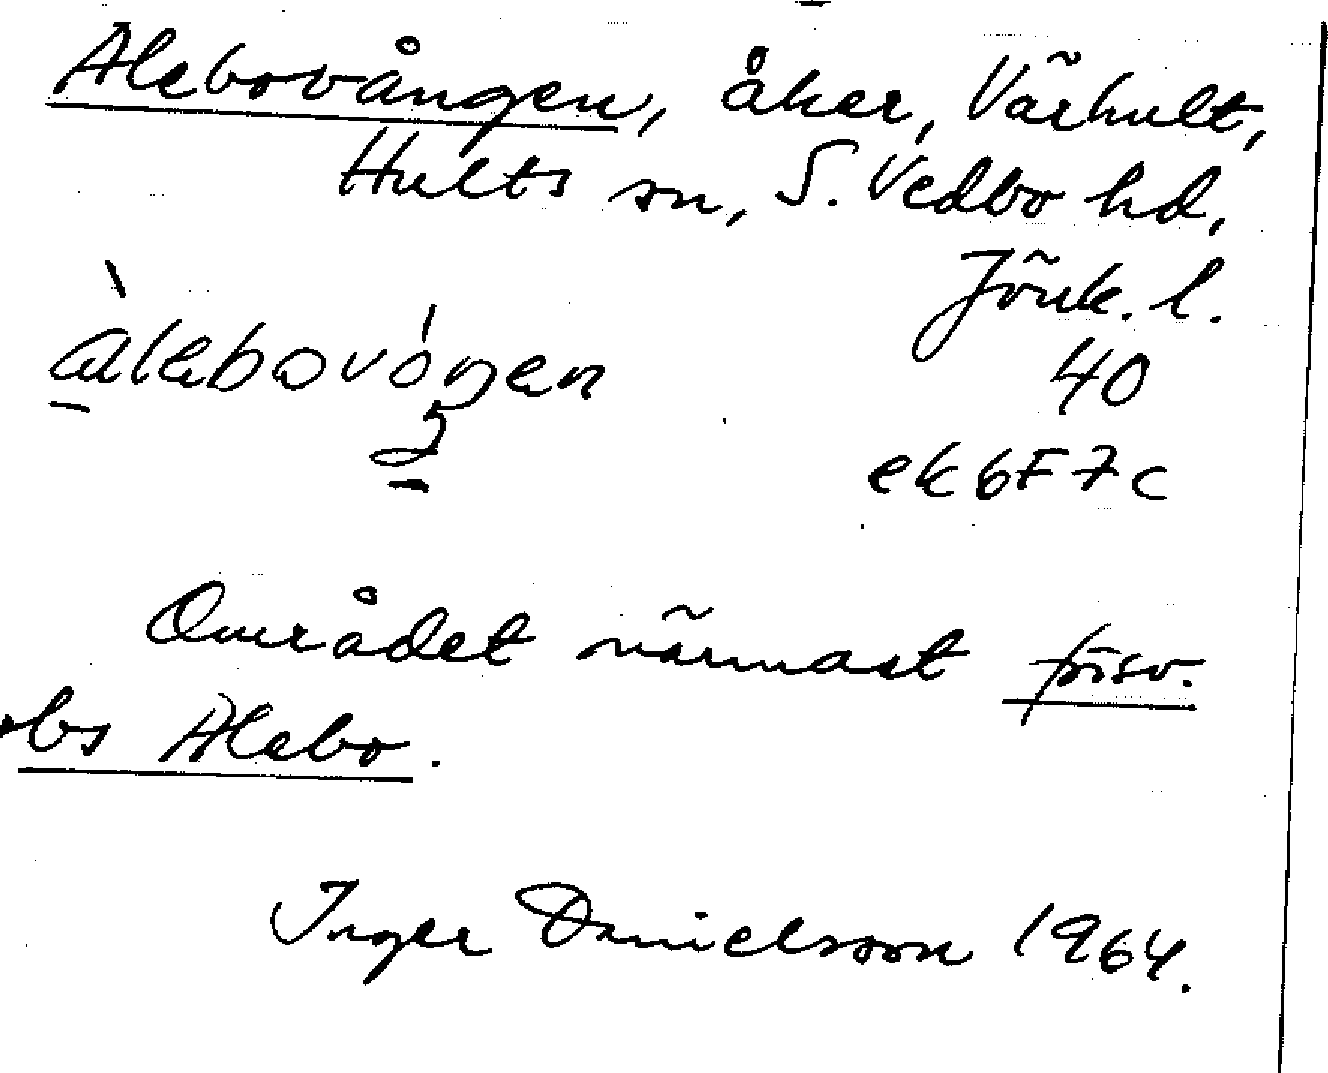 Alebovången, åker, Värhult,
Hults sn, S. Vedbo hd,
Jönk. l.
àlebovóŋen
40
ek 6F7c
Området närmast försv.
bs Alebo.
Inger Danielsson 1964.